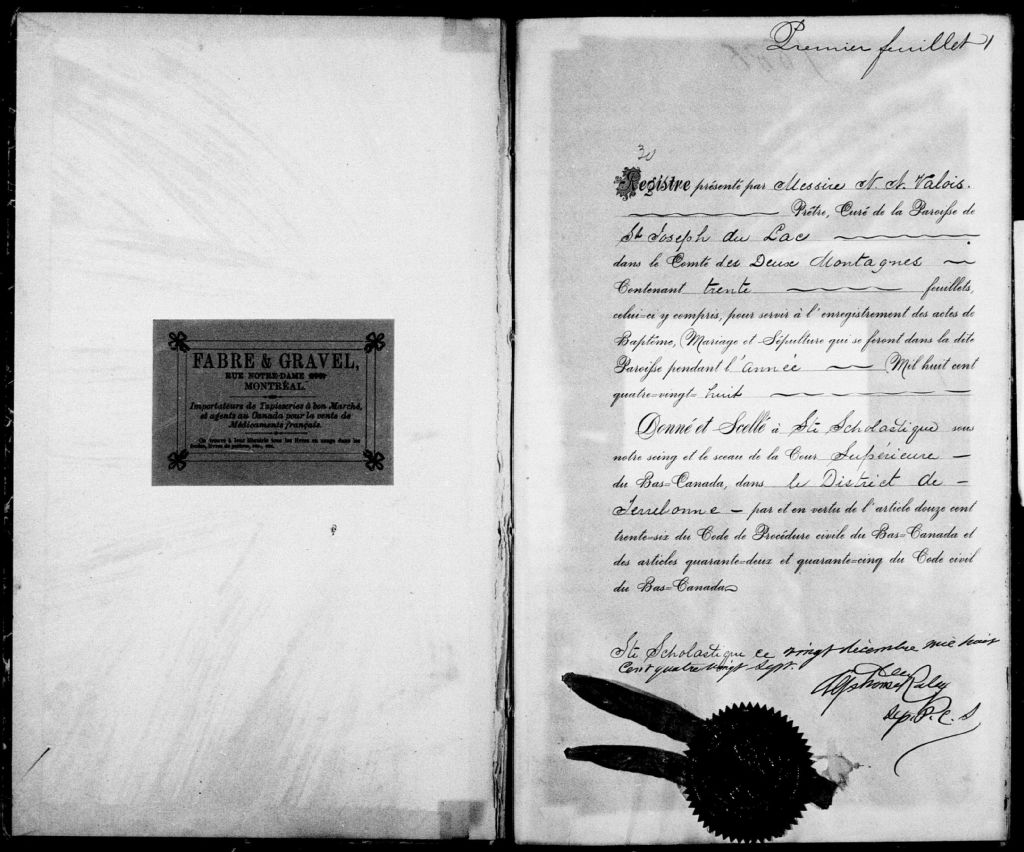 FABRE & GRAVEL,
RUE NOTRE-DAME
MONTRÉAL.
Importateurs de Tapisseries à bon Marché,
et agents au Canada pour la vente de
Médicaments français.
On trouve à leur librairie tous les livres en usage dans les
écoles, livres de prières, etc., etc.
Premier feuillet 1
30
Registre présenté par Messire N. A. Valois.
Prêtre, Curé de la Paroisse de
St Joseph du Lac
dans le Comté des Deux Montagnes
Contenant trente feuillets,
celui-ci y compris, pour servir à l'enregistrement des actes de
Baptême, Mariage et Sépulture qui se feront dans la dite
Paroisse pendant l'année Mil huit cent
quatre-vingt-huit
Donné et Scellé à Ste Scholastique sous
notre seing et le sceau de la Cour Supérieure
du Bas-Canada, dans le District de
Terrebonne par et en vertu de l'article douze cent
trente-six du Code de Procédure civile du Bas-Canada et
des articles quarante-deux et quarante-cinq du Code civil
du Bas-Canada
Ste Scholastique ce vingt décembre mil huit
Cent quatre vingt sept.
Dep. P. C. S